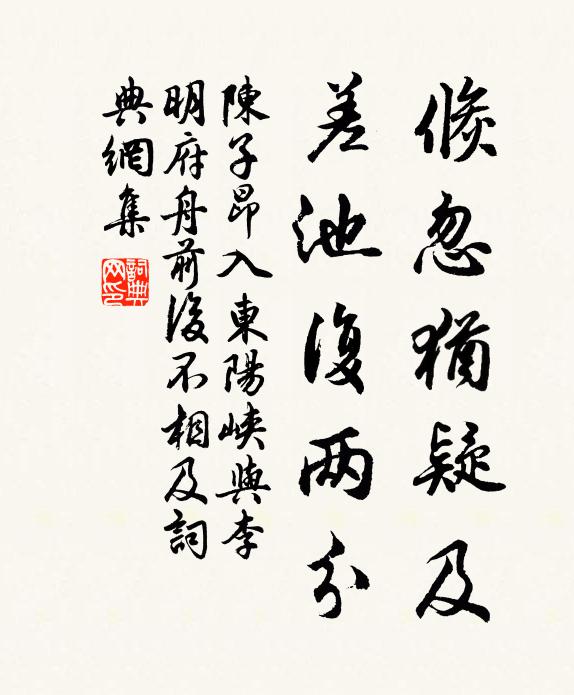 倏忽猶疑及
差池復兩分
陳子昂入東陽峽與李
明府舟前後不相及詞
典網集
詞典
网印